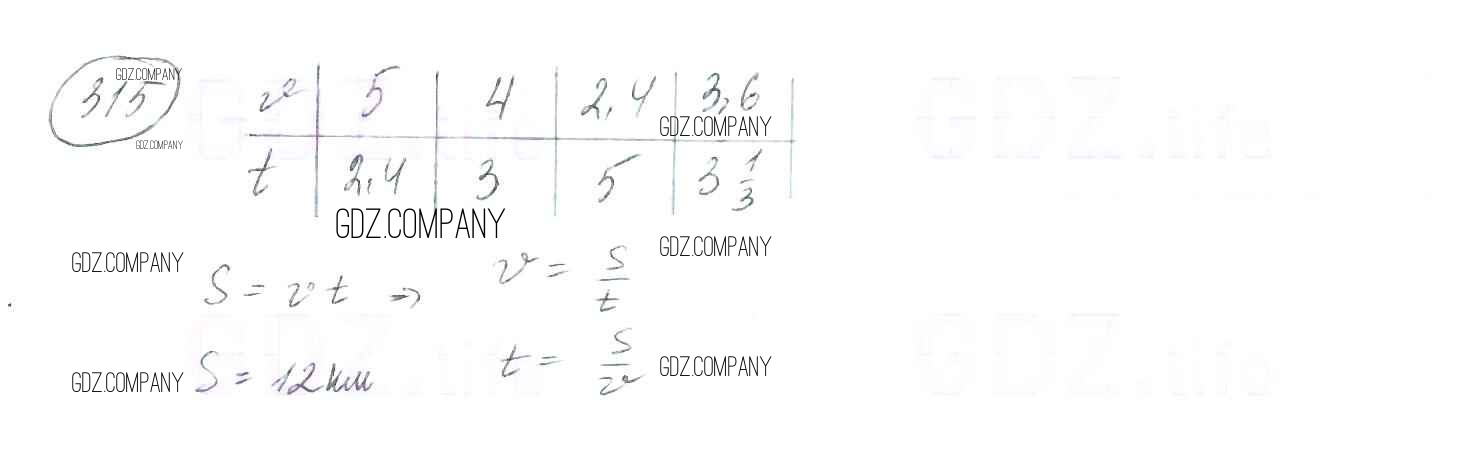 GDZ.COMPANY
315
GDZ.COMPANY
v | 5 | 4 | 2,4 | 3,6
GDZ.COMPANY
t | 2,4 | 3 | 5 | 3 1/3
GDZ.COMPANY
GDZ.COMPANY
GDZ.COMPANY
S = vt => v = S/t
S = 12 км t = S/v
GDZ.COMPANY
GDZ.COMPANY
GDZ.life
GDZ.life
GDZ.life
GDZ.life